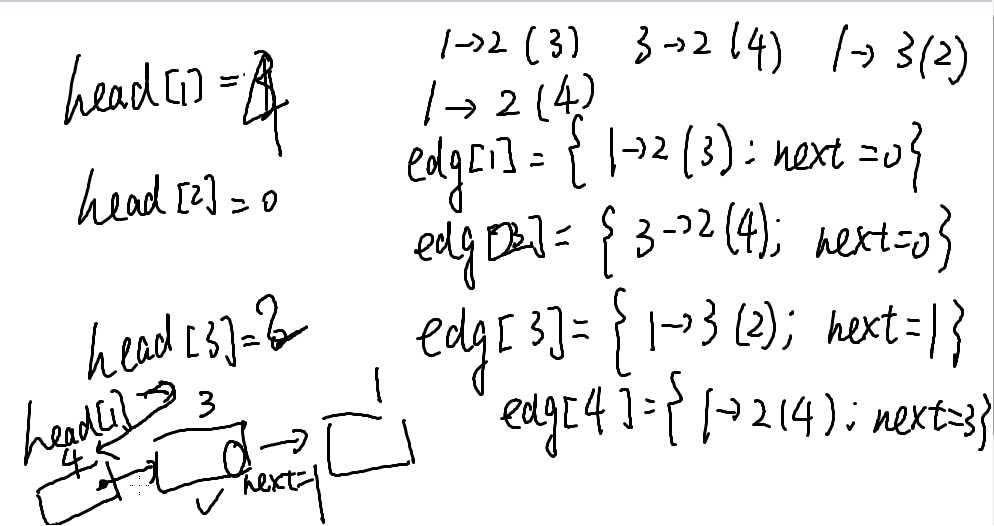 1→2 (3) 3→2 (4) 1→3(2)
1→2 (4)
head[1]=4
edg[1]={1→2(3): next=0}
head[2]=0
edg[2]={3→2(4); next=0}
head[3]=2
edg[3]={1→3(2); next=1}
edg[4]={1→2(4); next=3}
head[1]→
4 3 1
next=1